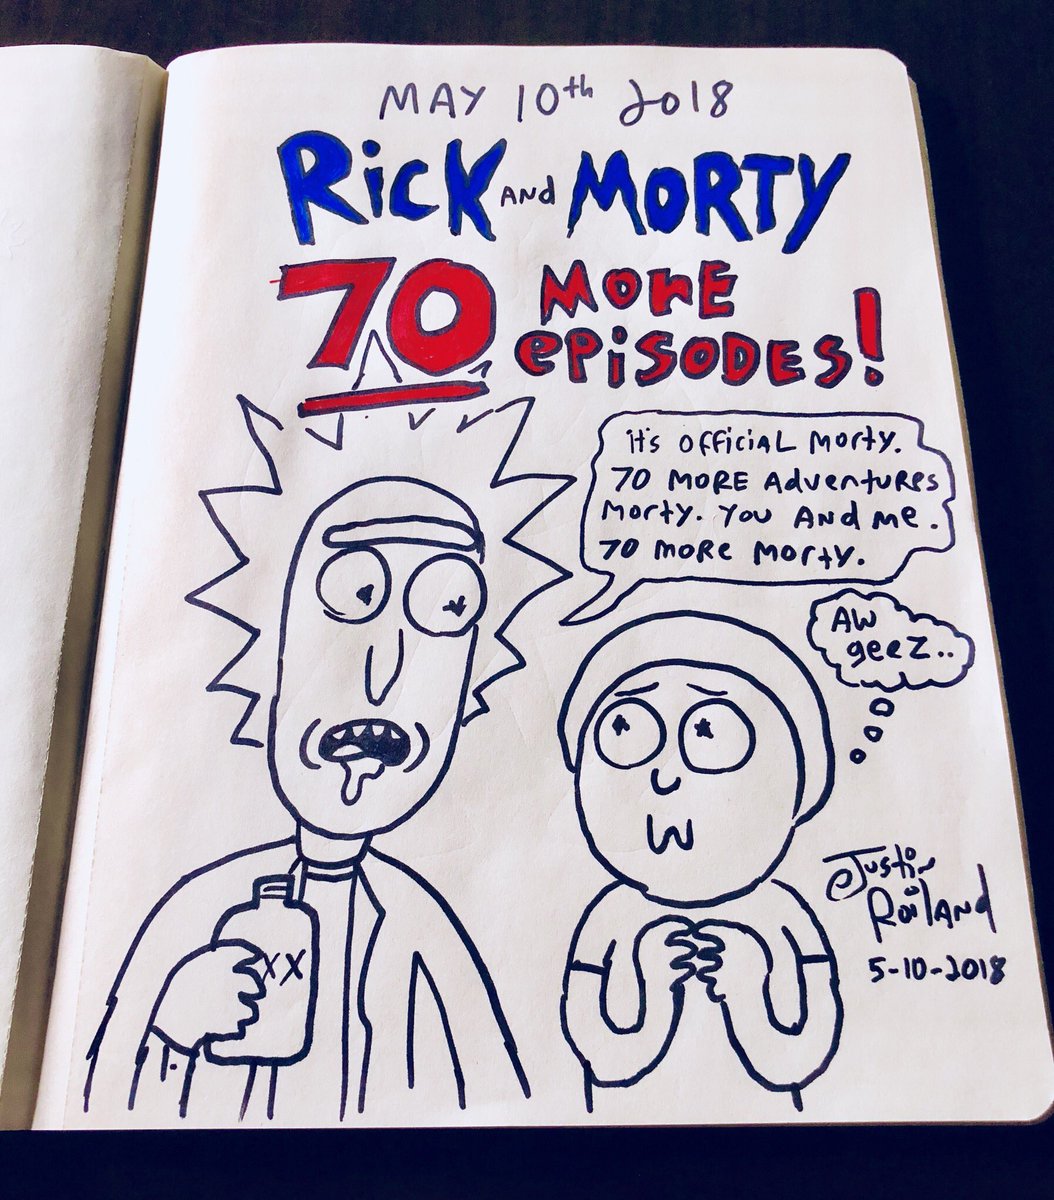 MAY 10th 2018
Rick AND MORTY
70 MorE
EPiSODES!
it's OfficiAL Morty.
70 MORE AdvENtURES
Morty. YOU ANd ME.
70 MORE MORTY.
AW
geeZ..
Justin
RoiLANd
5-10-2018
XX